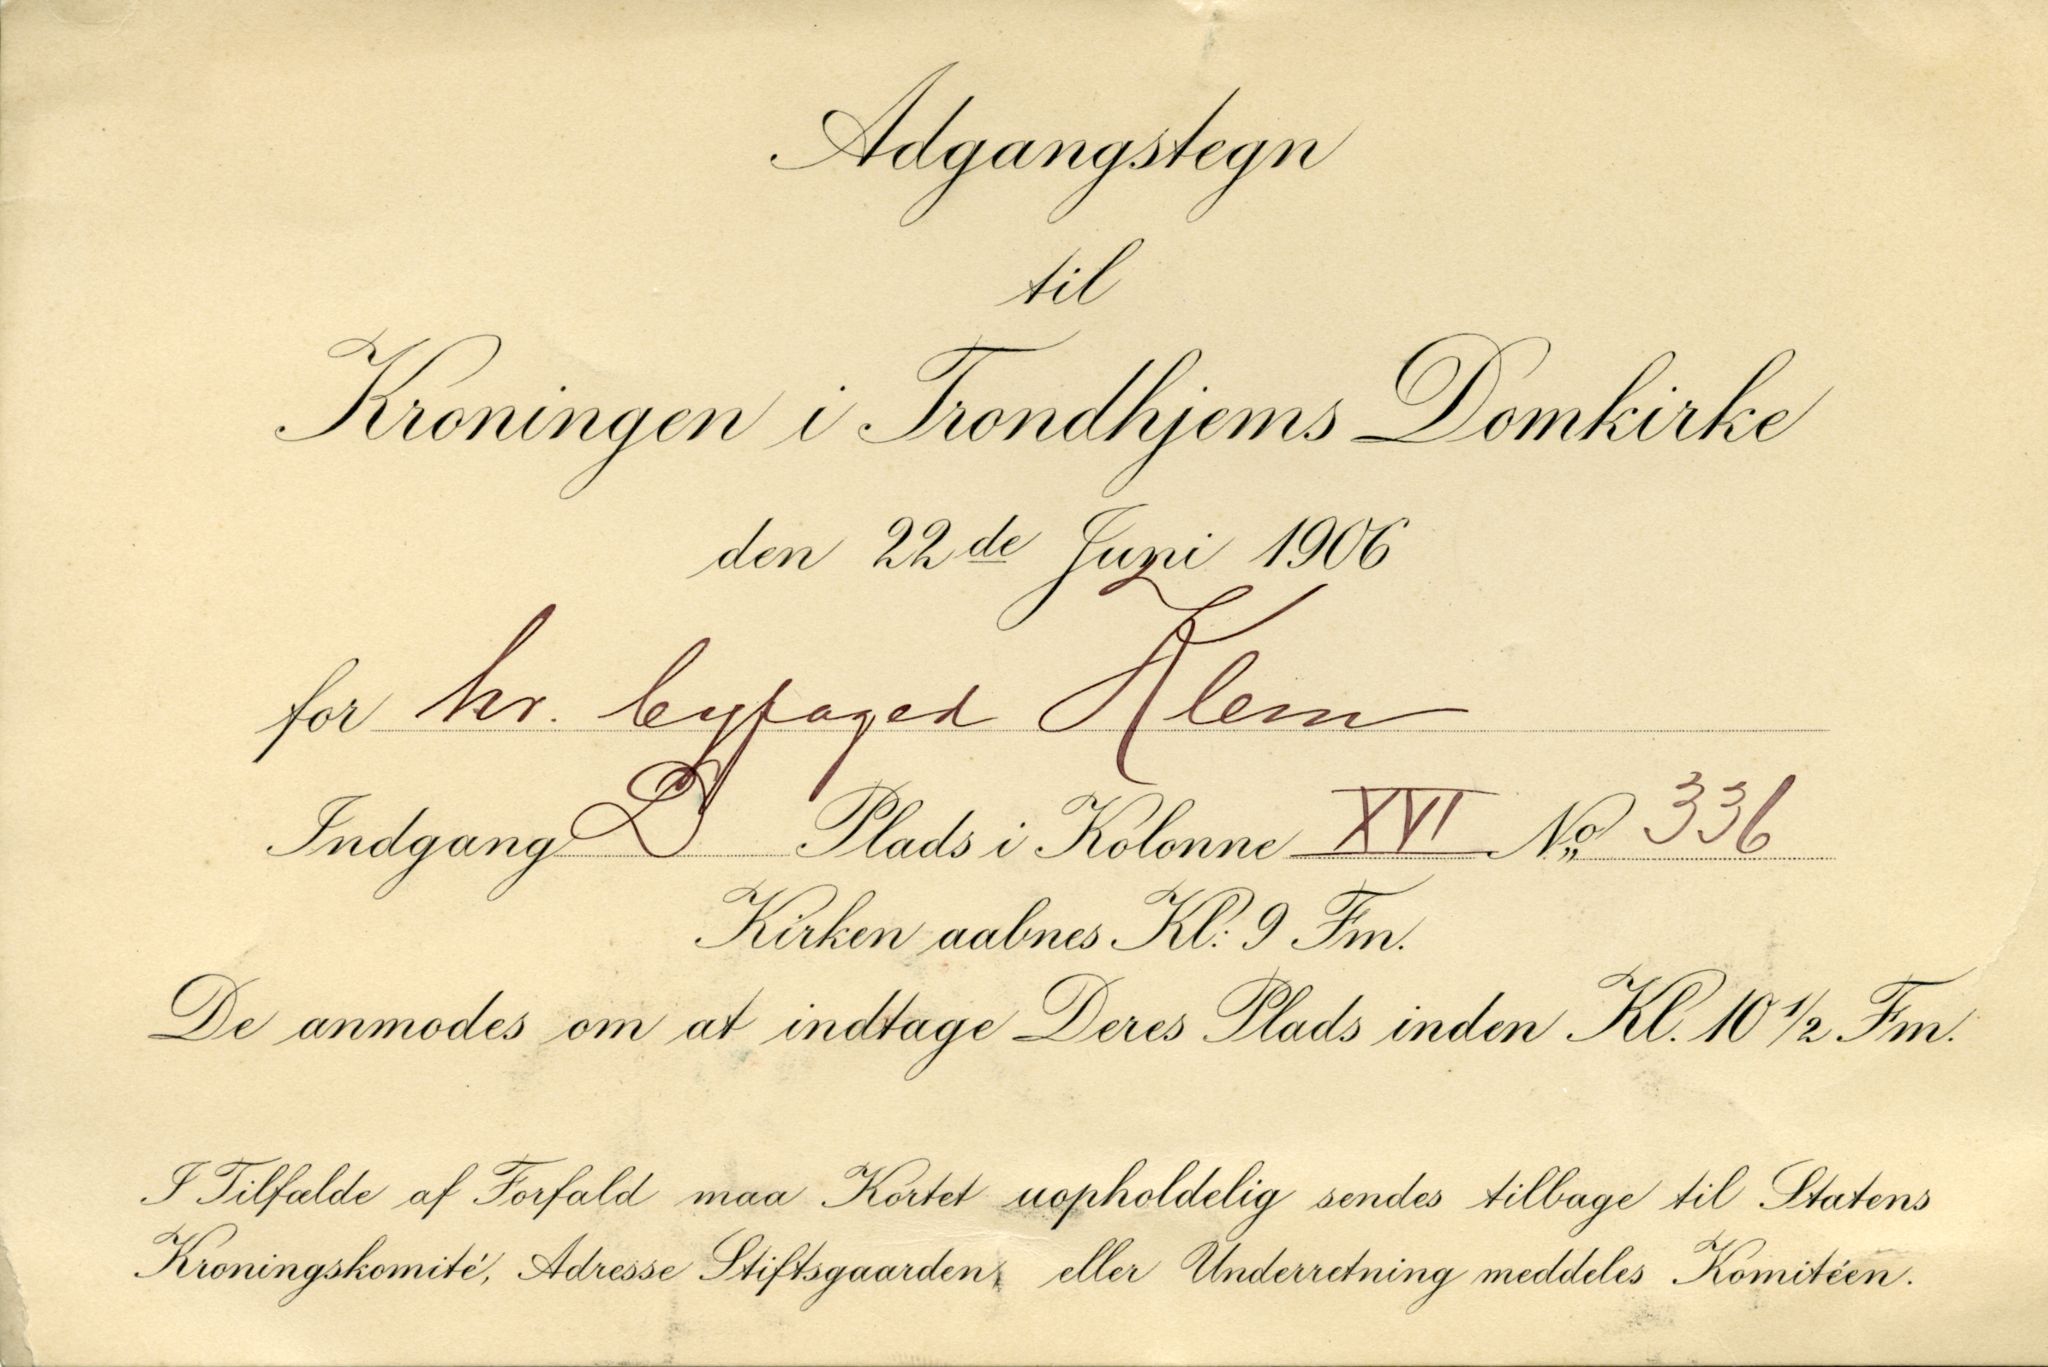 Adgangstegn
til
Kroningen i Trondhjems Domkirke
den 22de Juni 1906
for hr. byfoged Klem
Indgang D Plads i Kolonne XVI No 336
Kirken aabnes Kl: 9 Fm.
De anmodes om at indtage Deres Plads inden Kl. 10 1/2 Fm.
I Tilfælde af Forfald maa Kortet uopholdelig sendes tilbage til Statens
Kroningskomité, Adresse Stiftsgaarden, eller Underretning meddeles Komitéen.